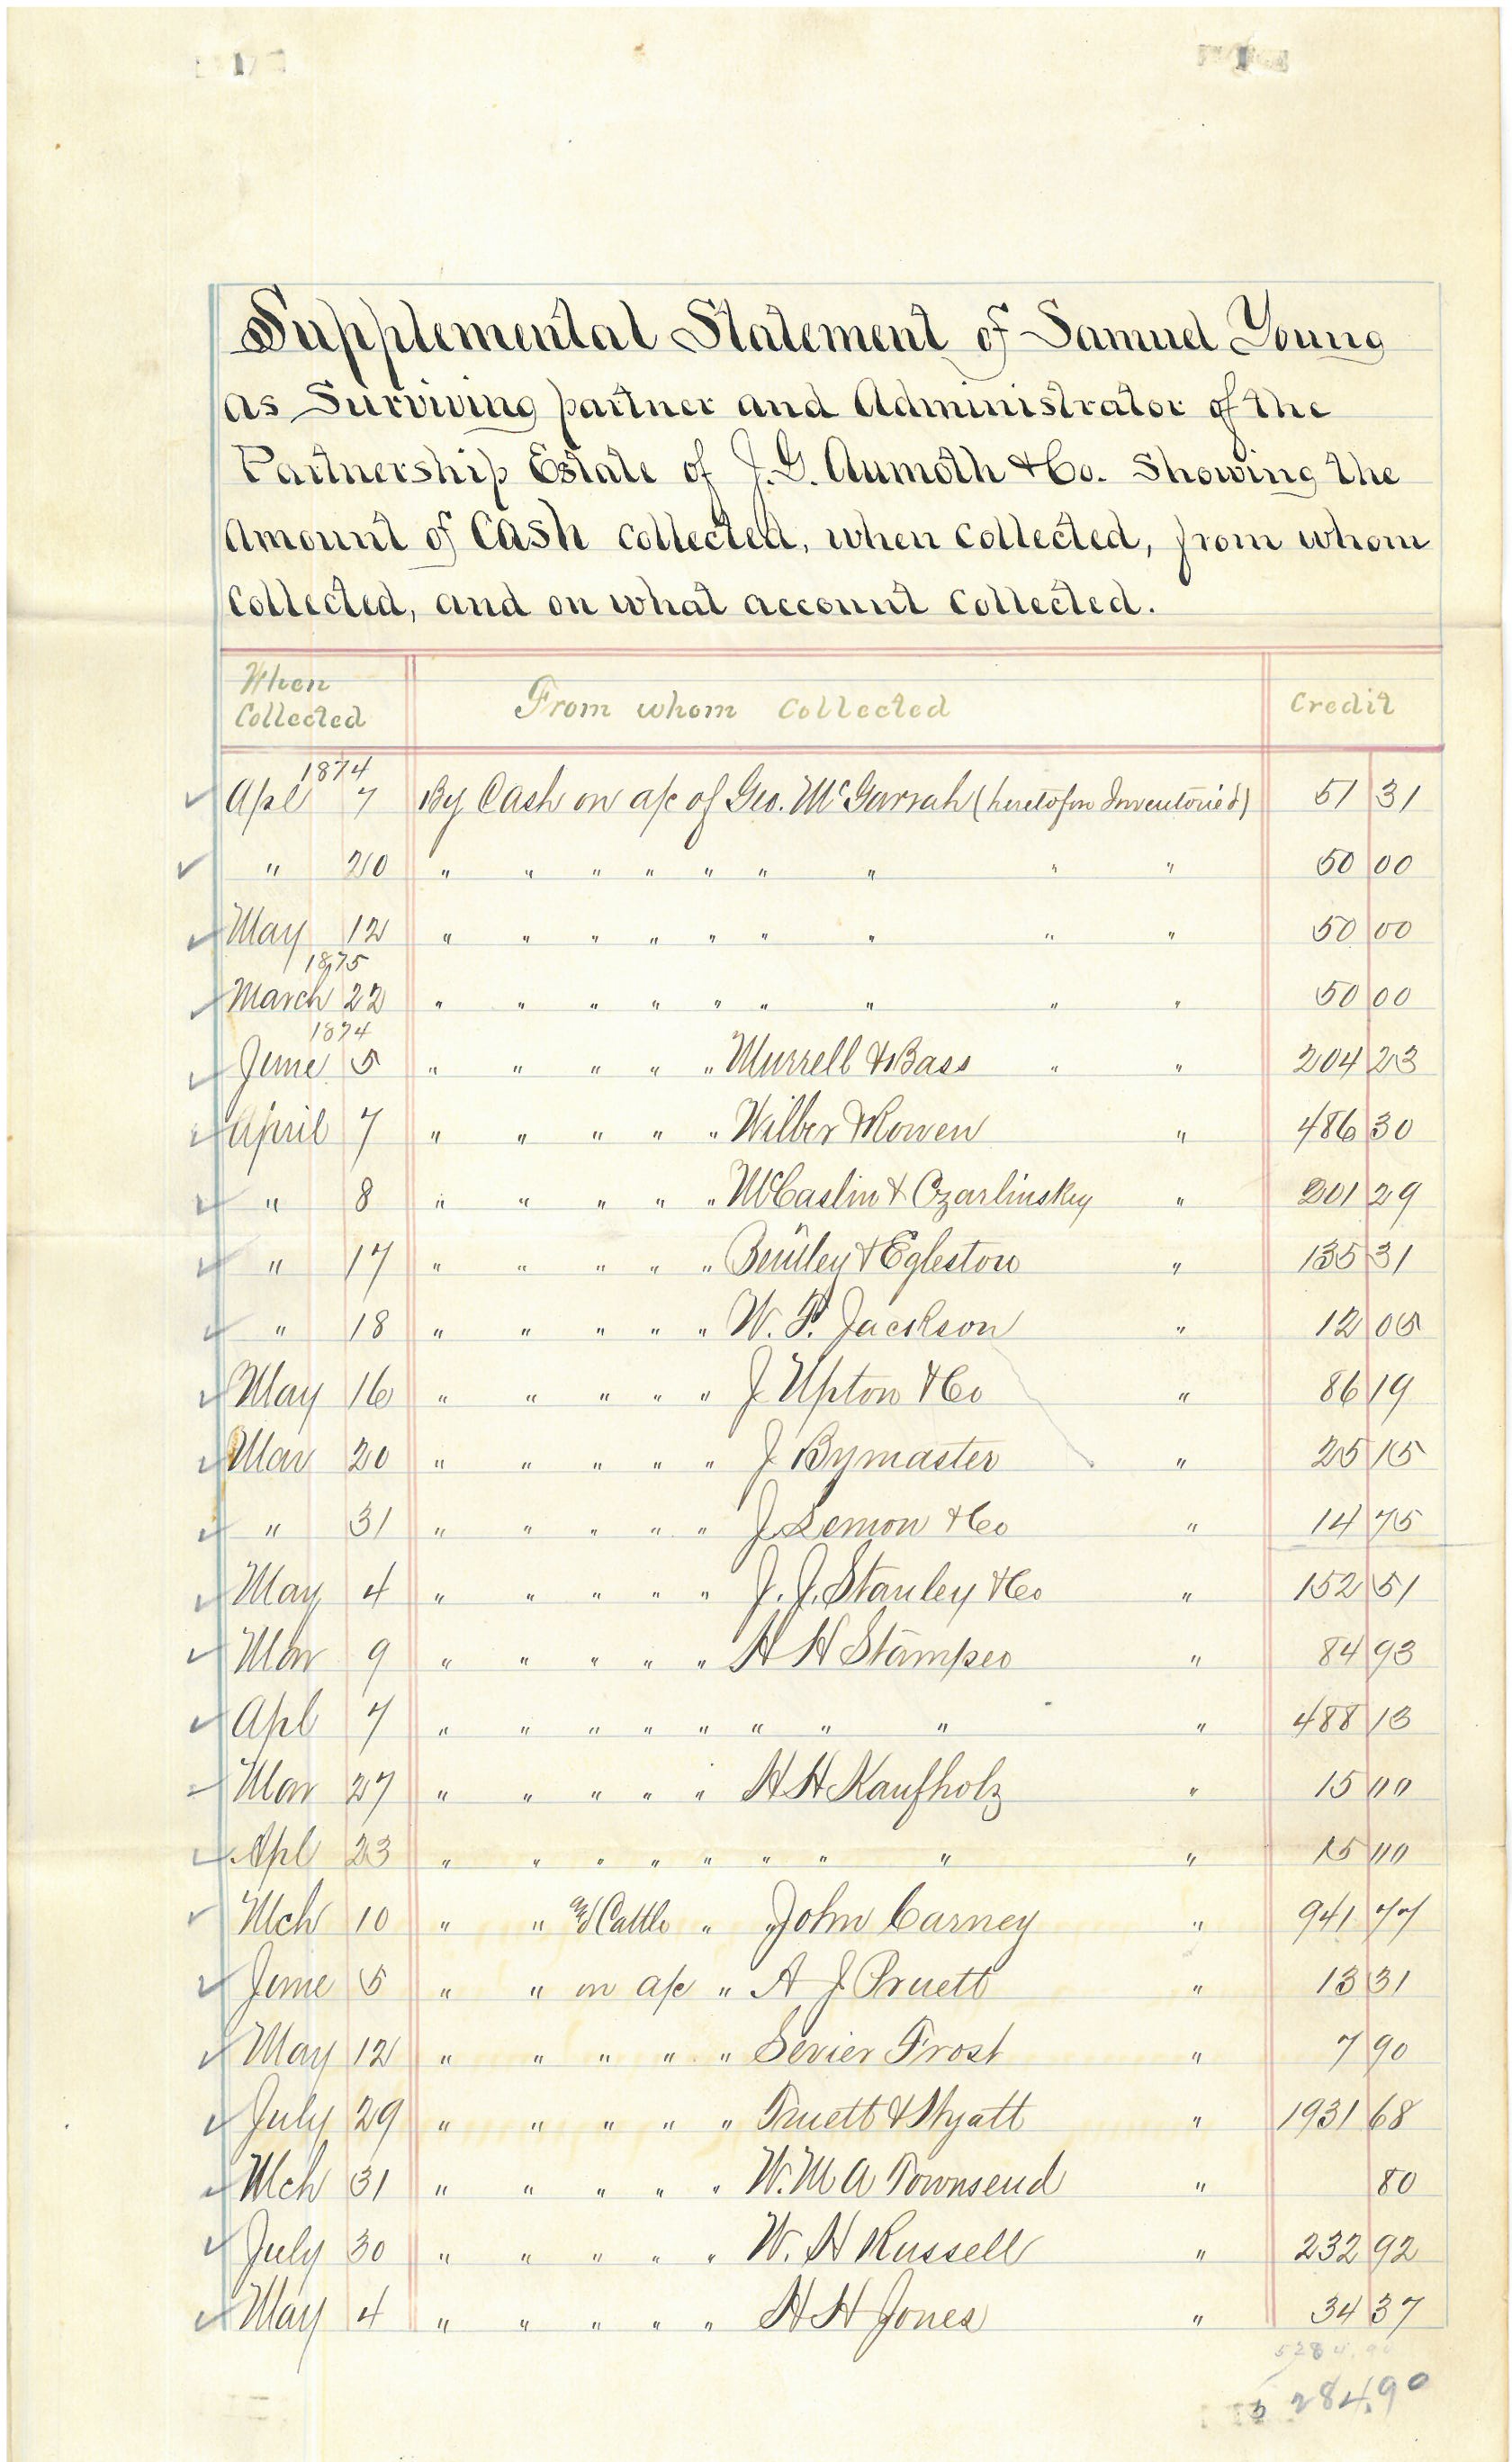 Supplemental Statement of Samuel Young
as Surviving partner and Administrator of the
Partnership Estate of J. G. Aumoth & Co. Showing the
Amount of Cash collected, when collected, from whom
Collected, and on what account Collected.
When Collected From whom Collected Credit
1874
Apl 7 By Cash on a/c of Geo. McGarrah (heretofore Inventoried) 51 31
" 20 " " " " " " " " " 50 00
May 12 " " " " " " " " " 50 00
1875
March 22 " " " " " " " " " 50 00
1874
June 5 " " " " " Murrell & Bass " " 204 23
April 7 " " " " " Wilber & Rowen " 486 30
" 8 " " " " " McCaslin & Czarlinskey " 201 29
" 17 " " " " " Bentley & Egleston " 135 31
" 18 " " " " " W. P. Jackson " 12 05
May 16 " " " " " J Upton & Co " 86 19
Mar 20 " " " " " J Bymaster " 25 15
" 31 " " " " " J Lemon & Co " 14 75
May 4 " " " " " J. J. Stanley & Co " 152 51
Mar 9 " " " " " H H Stamper " 84 93
Apl 7 " " " " " " " " " 488 13
Mar 27 " " " " " H H Kaufholz " 15 00
Apl 23 " " " " " " " " " 15 00
Mch 10 " " Cattle " John Carney " 941 77
June 5 " " on a/c " A J Pruett " 13 31
May 12 " " " " " Sevier Frost " 7 90
July 29 " " " " " Truett & Wyatt " 1931 68
Mch 31 " " " " " W. M A Townsend " 80
July 30 " " " " " W. H Russell " 232 92
May 4 " " " " " H H Jones " 34 37
5284.90
5284.90